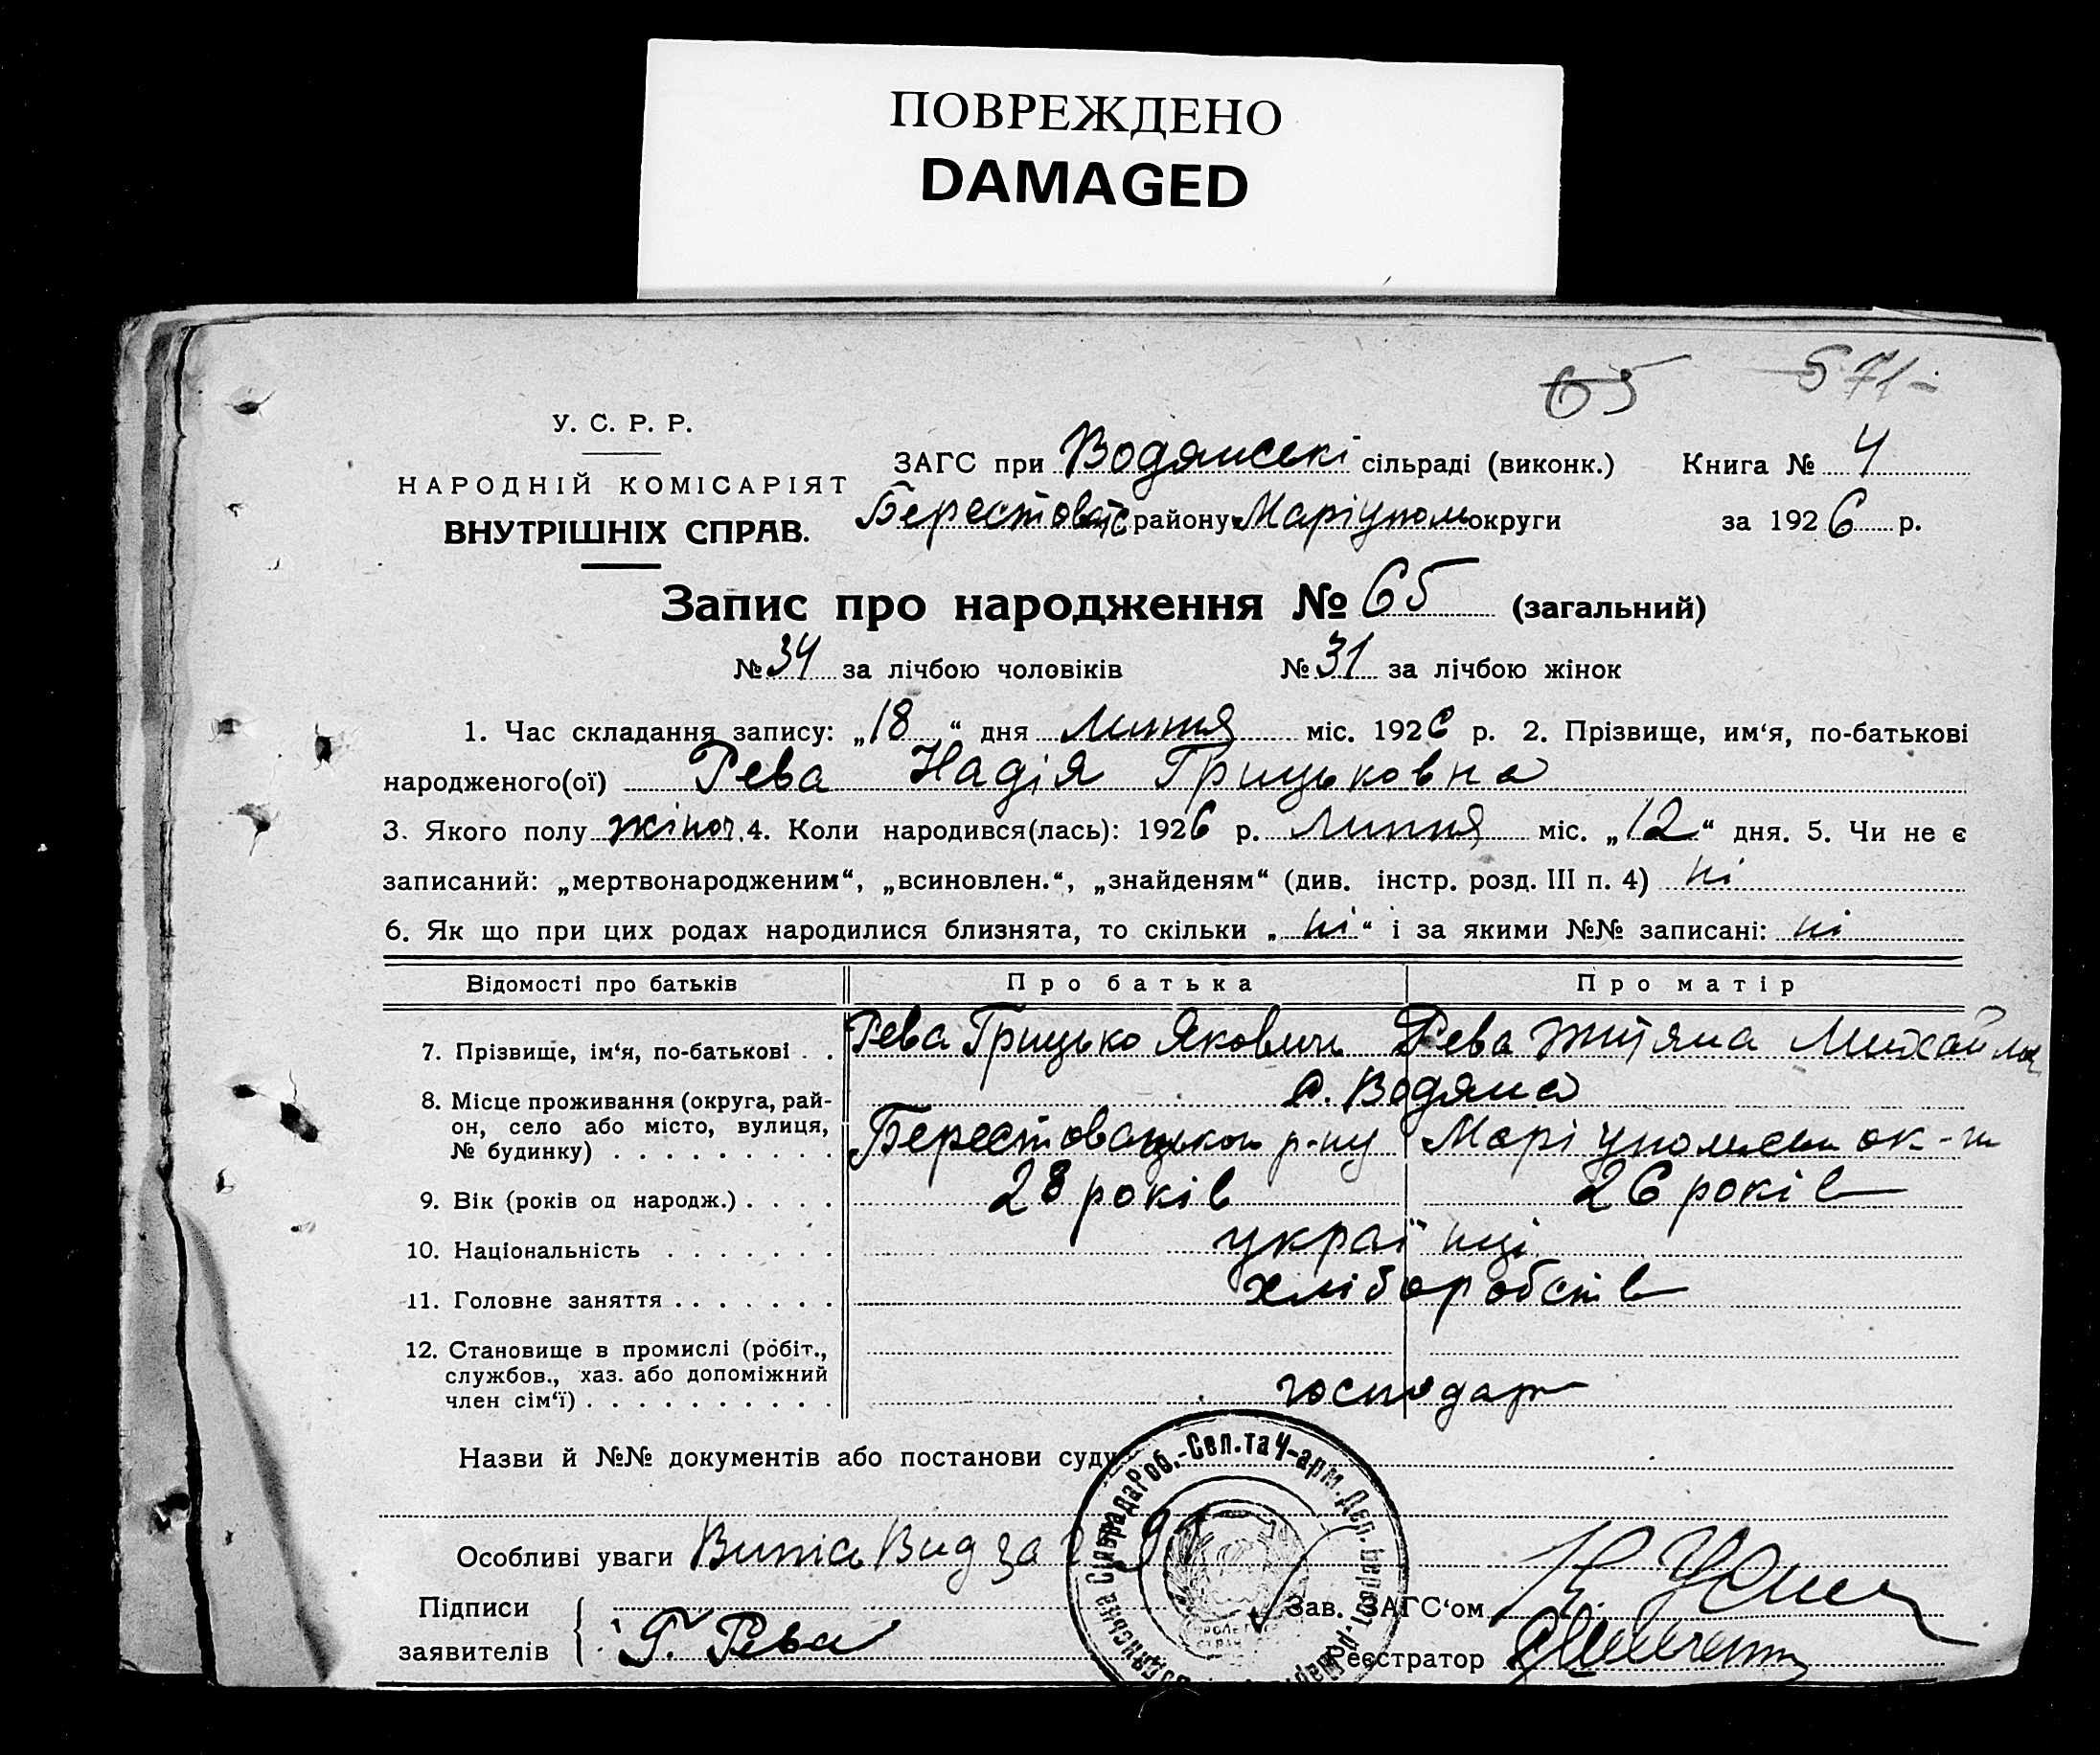 ПОВРЕЖДЕНО
DAMAGED
65 571-
У. С. Р. Р.
НАРОДНІЙ КОМІСАРІЯТ
ВНУТРІШНІХ СПРАВ.
ЗАГС при Водянсскі сільраді (виконк.) Книга № 4
Берестоваць району Маріупол округи за 1926 р.
Запис про народження № 65 (загальний)
№ 34 за лічбою чоловіків № 31 за лічбою жінок
1. Час складання запису: „18“ дня липня міс. 1926 р. 2. Прізвище, им‘я, по-батькові
народженого(ої) Рева Надія Грицьковна
3. Якого полу жіноч. 4. Коли народився(лась): 1926 р. липня міс. „12“ дня. 5. Чи не є
записаний: „мертвонародженим“, „всиновлен.“, „знайденям“ (див. інстр. розд. III п. 4) ні
6. Як що при цих родах народилися близнята, то скільки „ні“ і за якими №№ записані: ні
Відомості про батьків Про батька Про матір
7. Прізвище, ім‘я, по-батькові . . Рева Грицько Якович Рева Титяна Михайл
8. Місце проживання (округа, рай- с. Водяна
он, село або місто, вулиця,
№ будинку) . . . . . . . . . Берестовацьког р-ну Маріупольськ ок-ги
9. Вік (років од народж.) . . . . 28 років 26 років
10. Національність . . . . . . . українці
11. Головне заняття . . . . . . . хліборобств
12. Становище в промислі (робіт.,
службов., хаз. або допоміжний
член сім‘ї) . . . . . . . . . . господар
Назви й №№ документів або постанови суду
Особливі уваги Випіс Вид за
Підписи
заявителів Г. Рева
Зав. ЗАГС‘ом
Реєстратор
Водянська Сільрада Роб.-Сел. та Ч-арм. Деп. Берест. р.